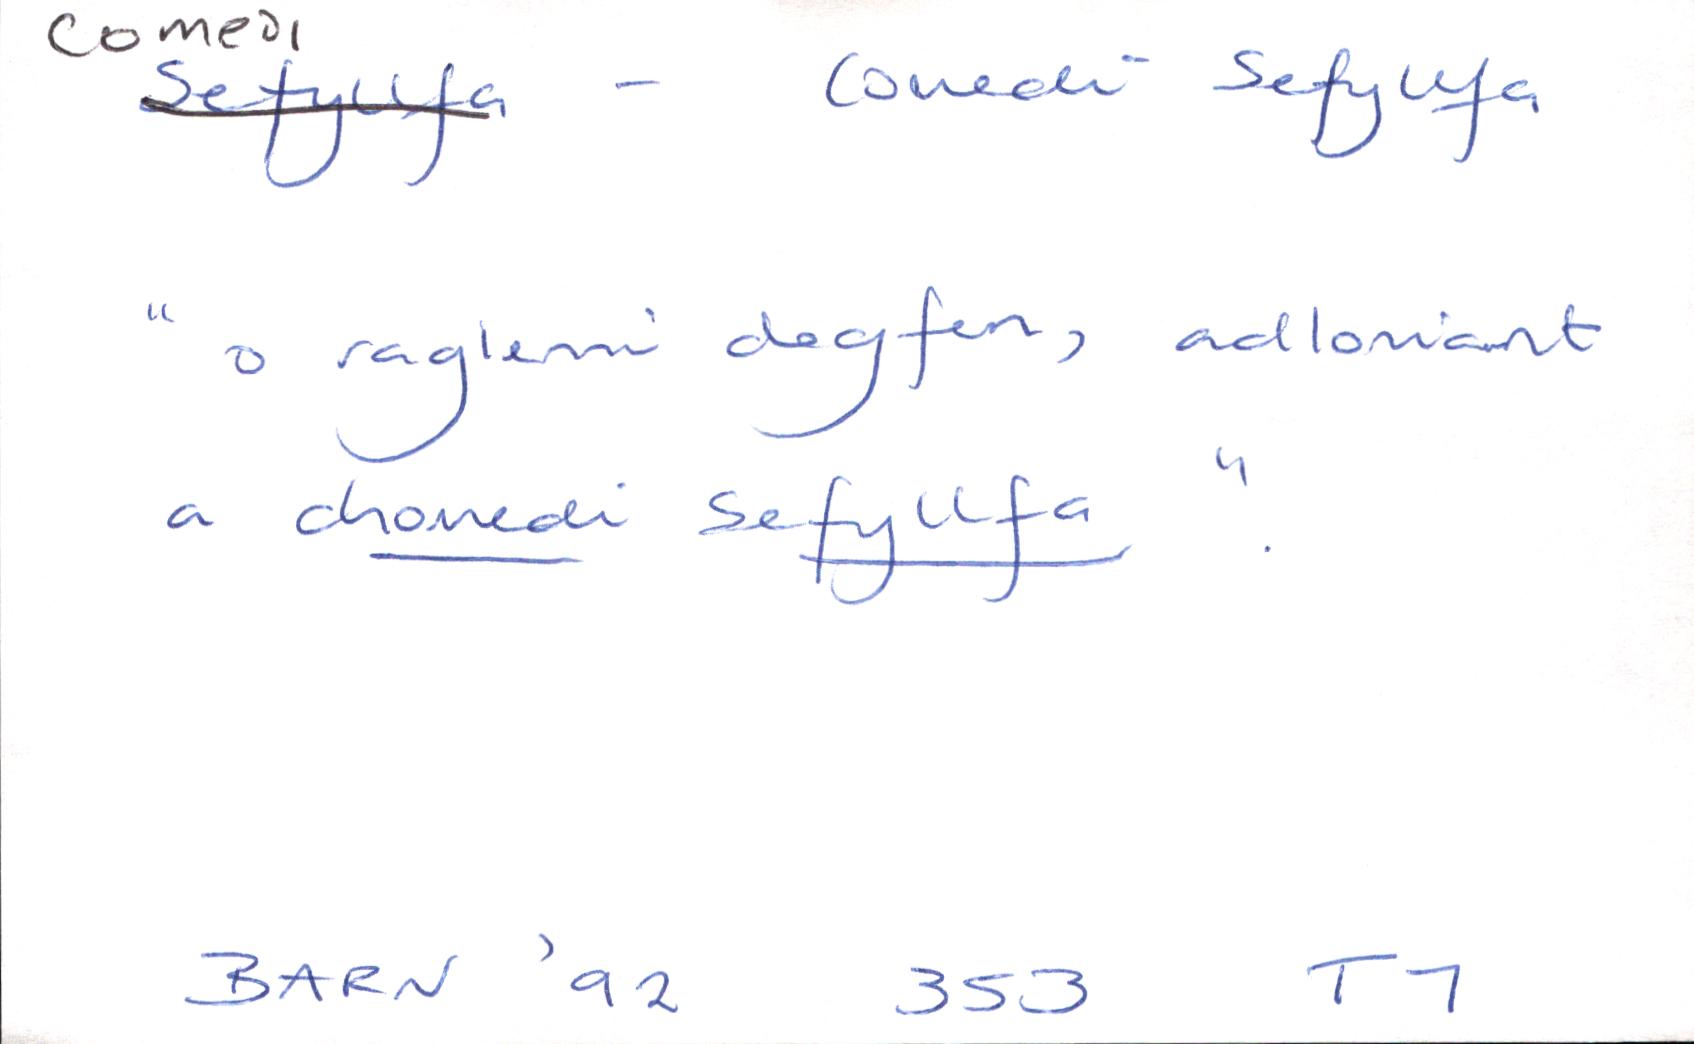 COMEDI
Sefyllfa - Comedi Sefyllfa
"o raglenni degfen, adloniant
a chomedi sefyllfa".
BARN '92 353 T7